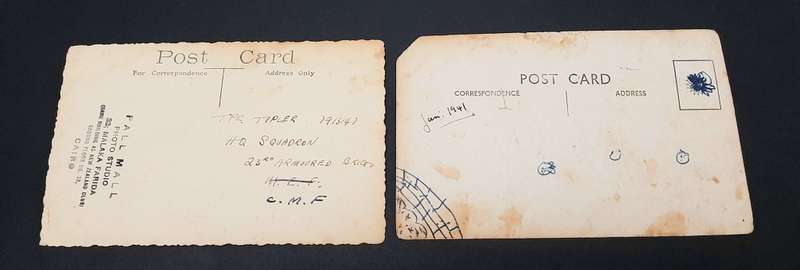 Post Card
For Correspondence
Address Only
TPR TYPLER
HQ SQUADRON
23RD ARMOURED BRIG
M.E.F.
C.M.F
PALL MALL
PHOTO STUDIO
33, MALAKA FARIDA
GROUND FLOOR
CAIRO
POST CARD
CORRESPONDENCE
ADDRESS
Jan. 1941